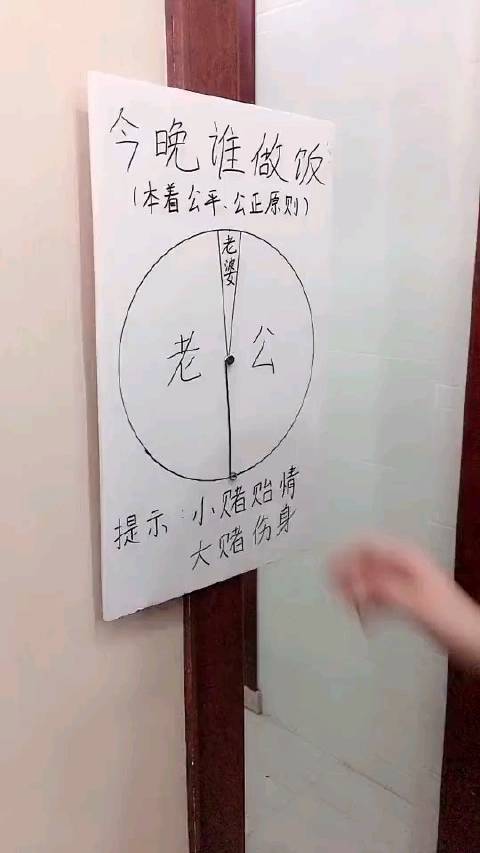 今晚谁做饭
（本着公平、公正原则）
老婆
老公
提示：小赌贻情
大赌伤身